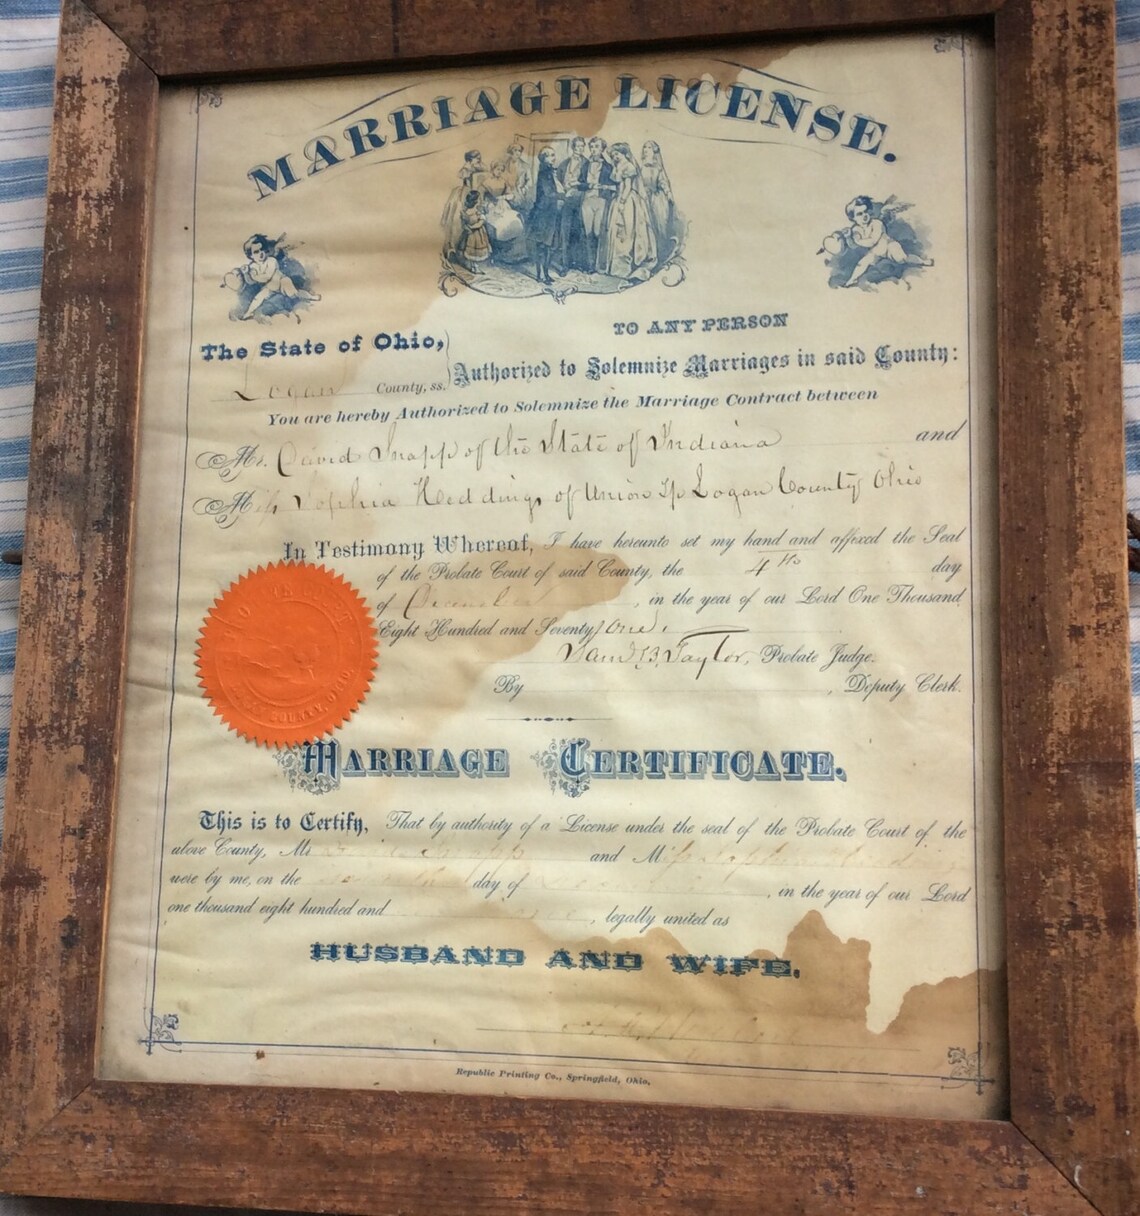 MARRIAGE LICENSE.
The State of Ohio,
Logan County, ss.
TO ANY PERSON
Authorized to Solemnize Marriages in said County:
You are hereby Authorized to Solemnize the Marriage Contract between
Mr. David Snapp of the State of Indiana and
Miss Sophia Heddings of Union Tp Logan County Ohio
In Testimony Whereof, I have hereunto set my hand and affixed the Seal
of the Probate Court of said County, the 4th day
of December, in the year of our Lord One Thousand
Eight Hundred and Seventy one.
Saml B. Taylor, Probate Judge.
By , Deputy Clerk.
COUNTY, OHIO
MARRIAGE CERTIFICATE.
This is to Certify, That by authority of a License under the seal of the Probate Court of the
above County, Mr David Snapp and Miss Sophia
were by me, on the day of , in the year of our Lord
one thousand eight hundred and one, legally united as
HUSBAND AND WIFE.
Republic Printing Co., Springfield, Ohio.